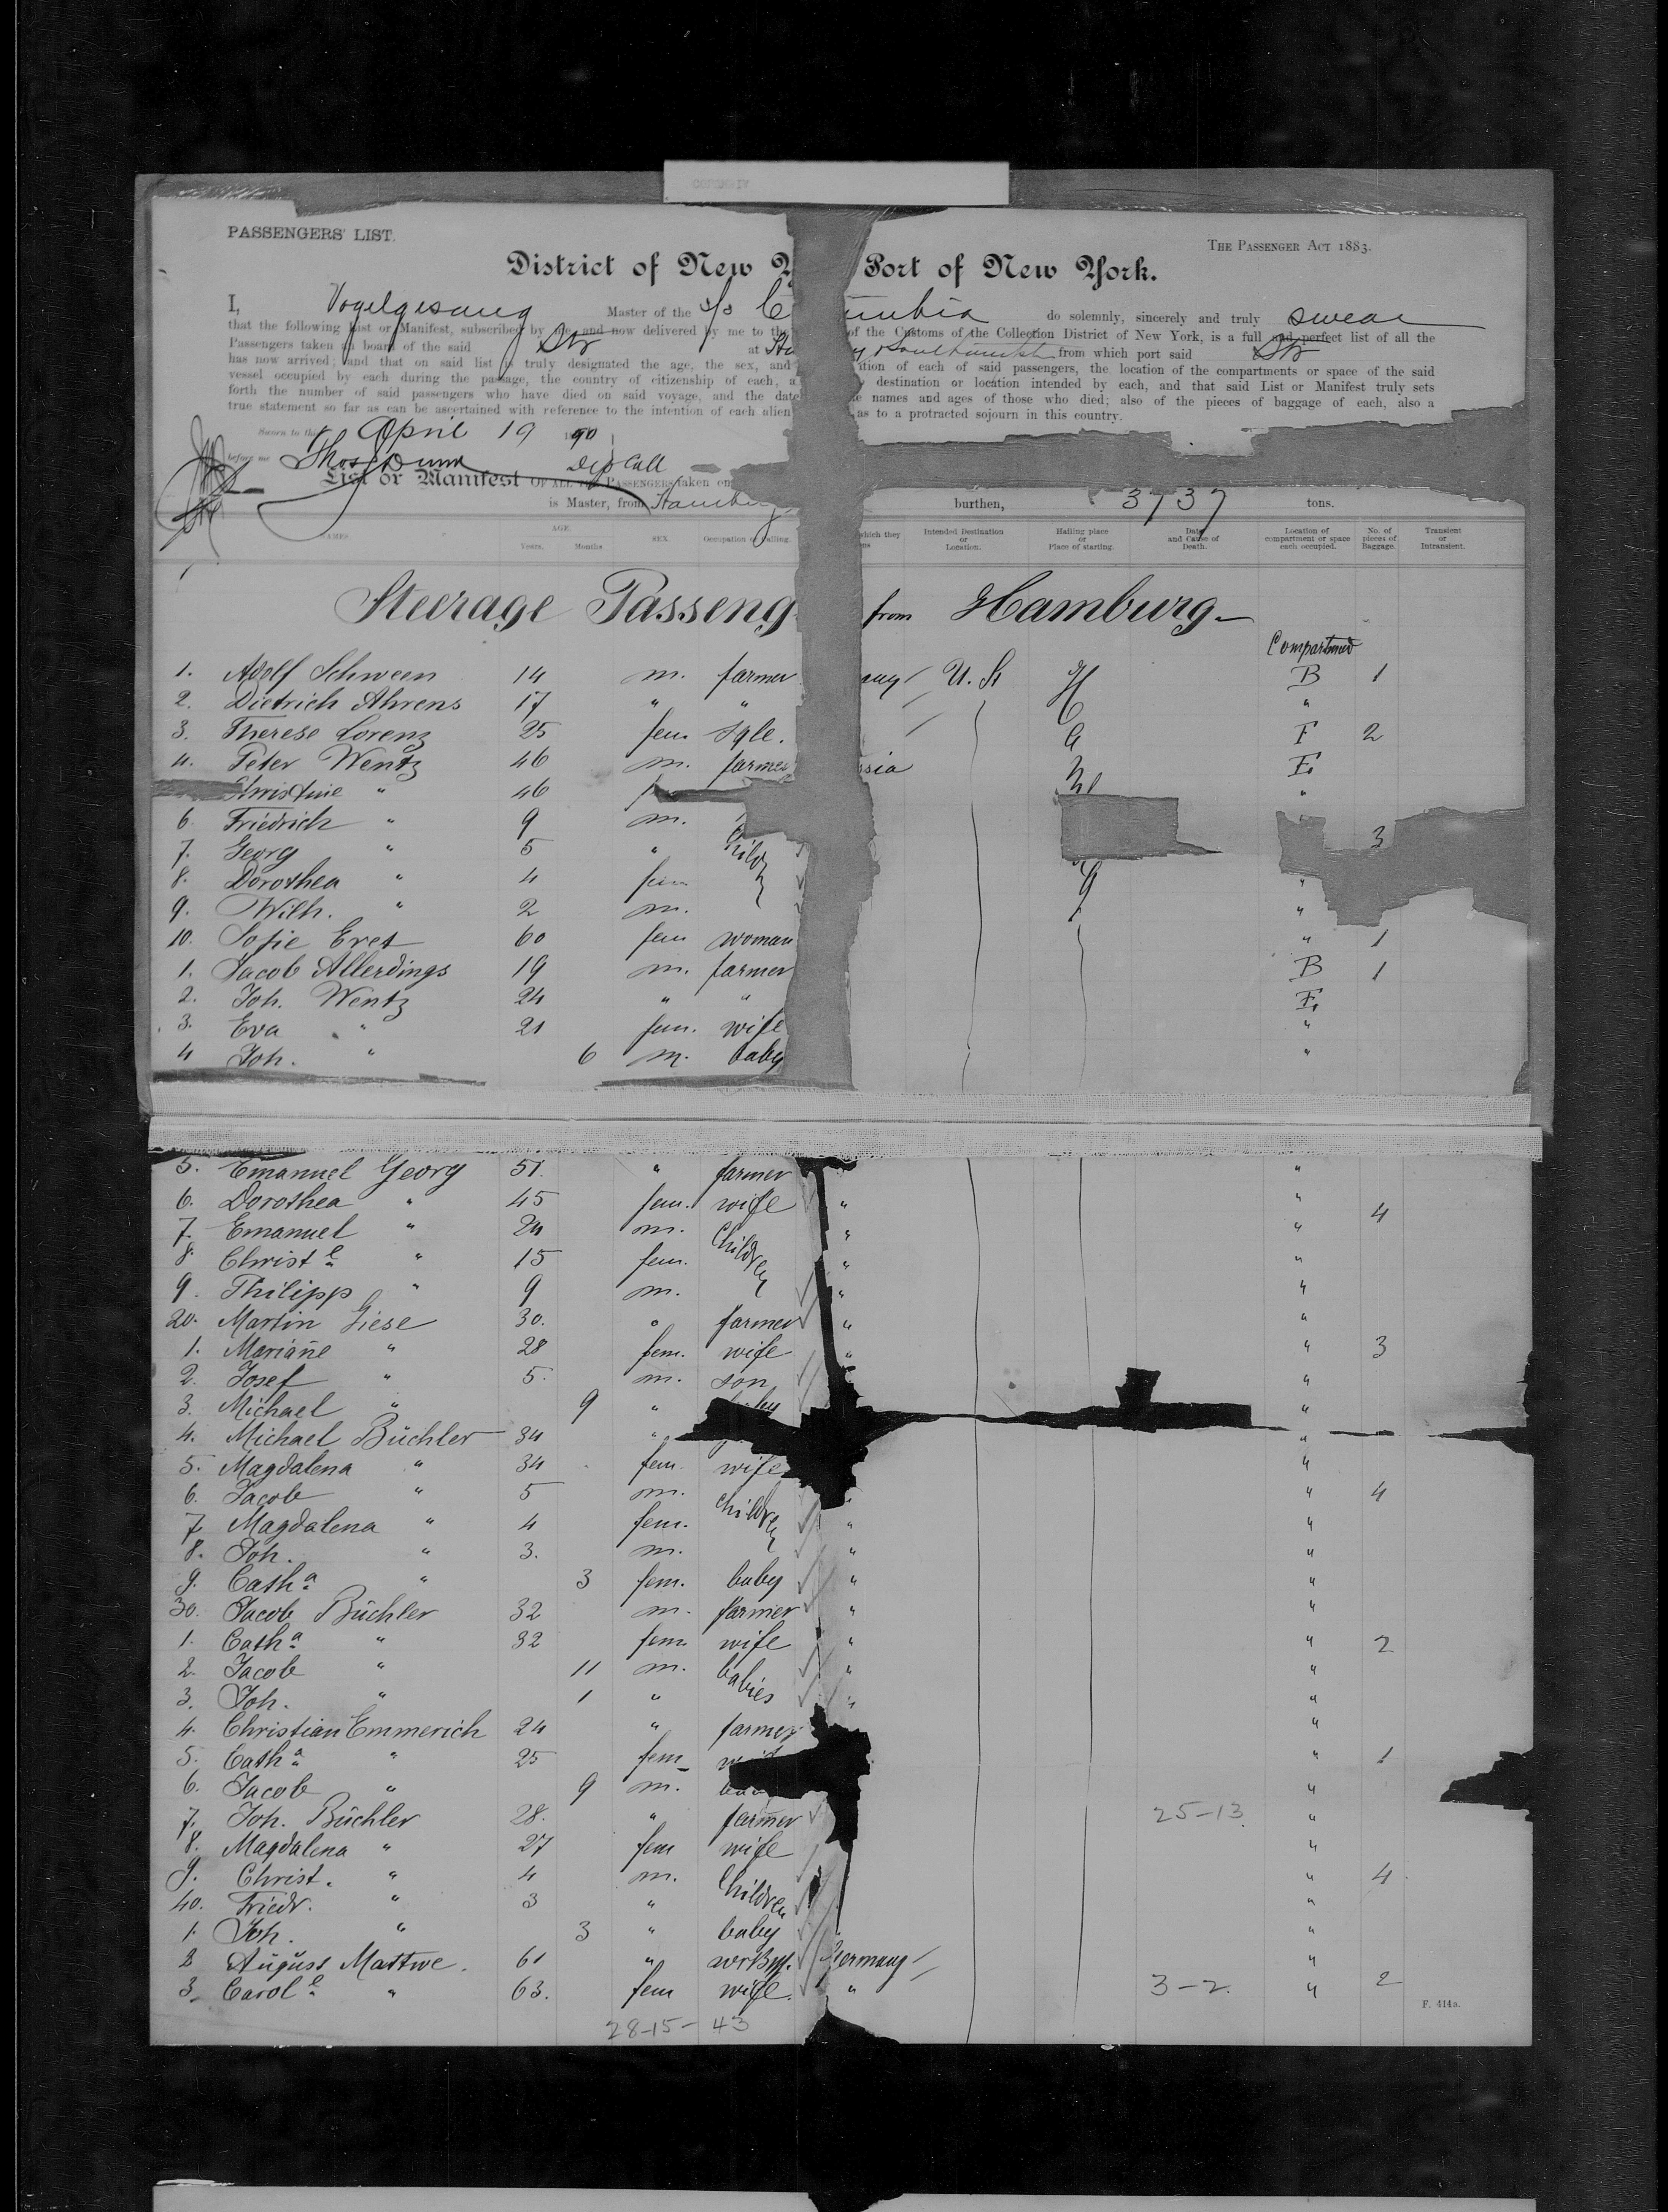 PASSENGERS' LIST.
THE PASSENGER ACT 1883.
District of New Y Port of New York.
I, Vogelgesang Master of the S/S C umbia do solemnly, sincerely and truly swear
that the following List or Manifest, subscribed by me, and now delivered by me to the of the Customs of the Collection District of New York, is a full and perfect list of all the
Passengers taken on board of the said Str at Ha g & Southampton from which port said Str
has now arrived; and that on said list is truly designated the age, the sex, and ition of each of said passengers, the location of the compartments or space of the said
vessel occupied by each during the passage, the country of citizenship of each, a destination or location intended by each, and that said List or Manifest truly sets
forth the number of said passengers who have died on said voyage, and the date e names and ages of those who died; also of the pieces of baggage of each, also a
true statement so far as can be ascertained with reference to the intention of each alien as to a protracted sojourn in this country.
Sworn to this April 19 90
before me Thos Dunn Dep Coll
List or Manifest OF ALL THE PASSENGERS taken on
is Master, from Hamburg burthen, 3737 tons.
NAMES. AGE. Years. Months SEX. Occupation or Calling. which they Intended Destination or Location. Hailing place or Place of starting. Date and Cause of Death. Location of compartment or space each occupied. No. of pieces of Baggage. Transient or Intransient.
Steerage Passeng from Hamburg
Compartment
1. Adolf Schween 14 m. farmer any U.S. B 1
2. Dietrich Ahrens 17 " " "
3. Therese Lorenz 25 fem sgle. F 2
4. Peter Wentz 46 m. farmer sia E.
Christine " 46 "
6. Friedrich " 9 m. 3
7. Georg " 5 "
8. Dorothea " 4 fem "
9. Wilh. " 2 m. "
10. Sofie Eret 60 fem woman " 1
1. Jacob Allerdings 19 m. farmer B 1
2. Joh. Wentz 24 " " E.
3. Eva " 21 fem. wife "
4 Joh. " 6 m. baby "
5. Emanuel Georg 51. " farmer "
6. Dorothea " 45 fem. wife " " 4
7. Emanuel " 24 m. Children " "
8. Christe " 15 fem. " "
9. Philipp " 9 m. " "
20. Martin Giese 30. " farmer " "
1. Mariañe " 28 fem. wife " " 3
2. Josef " 5. m. son "
3. Michael " 9 " "
4. Michael Büchler 34 " "
5. Magdalena " 34 fem. wife "
6. Jacob " 5 m. children " " 4
7. Magdalena " 4 fem. " "
8. Joh. " 3. m. " "
9. Catha " 3 fem. baby " "
30. Jacob Büchler 32 m. farmer " "
1. Catha " 32 fem wife " " 2
2. Jacob " 11 m. babies " "
3. Joh. " 1 " " "
4. Christian Emmerich 24 " farmer "
5. Catha " 25 fem " 1
6. Jacob " 9 m. "
7. Joh. Büchler 28. " farmer 25-13. "
8. Magdalena " 27 fem wife "
9. Christ. " 4 m. Children " 4
40. Friedr. " 3 " "
1. Joh. " 3 " baby "
2 August Mattwe. 61 " Germany "
3. Carole " 63. fem wife. " 3-2. " 2
F. 414a.
28-15-43